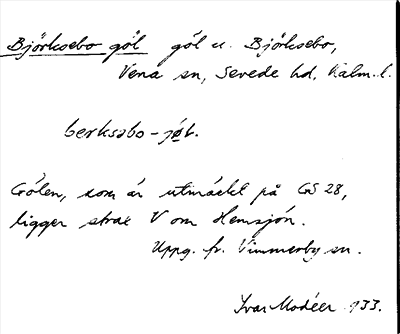 Björksebo göl göl u. Björksebo,
Vena sn, Sevede hd, Kalm. l.
berksəbo-jø̀l.
Gölen, som är utmärkt på GS 28,
ligger strax V om Hemsjön.
Uppg. fr. Vimmerby sn.
Ivar Modéer 1933.